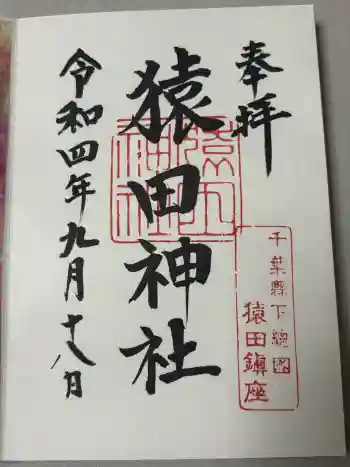 奉拝
千葉縣下総國
猿田鎮座
猿田神社
猿田神社
令和四年九月十八日